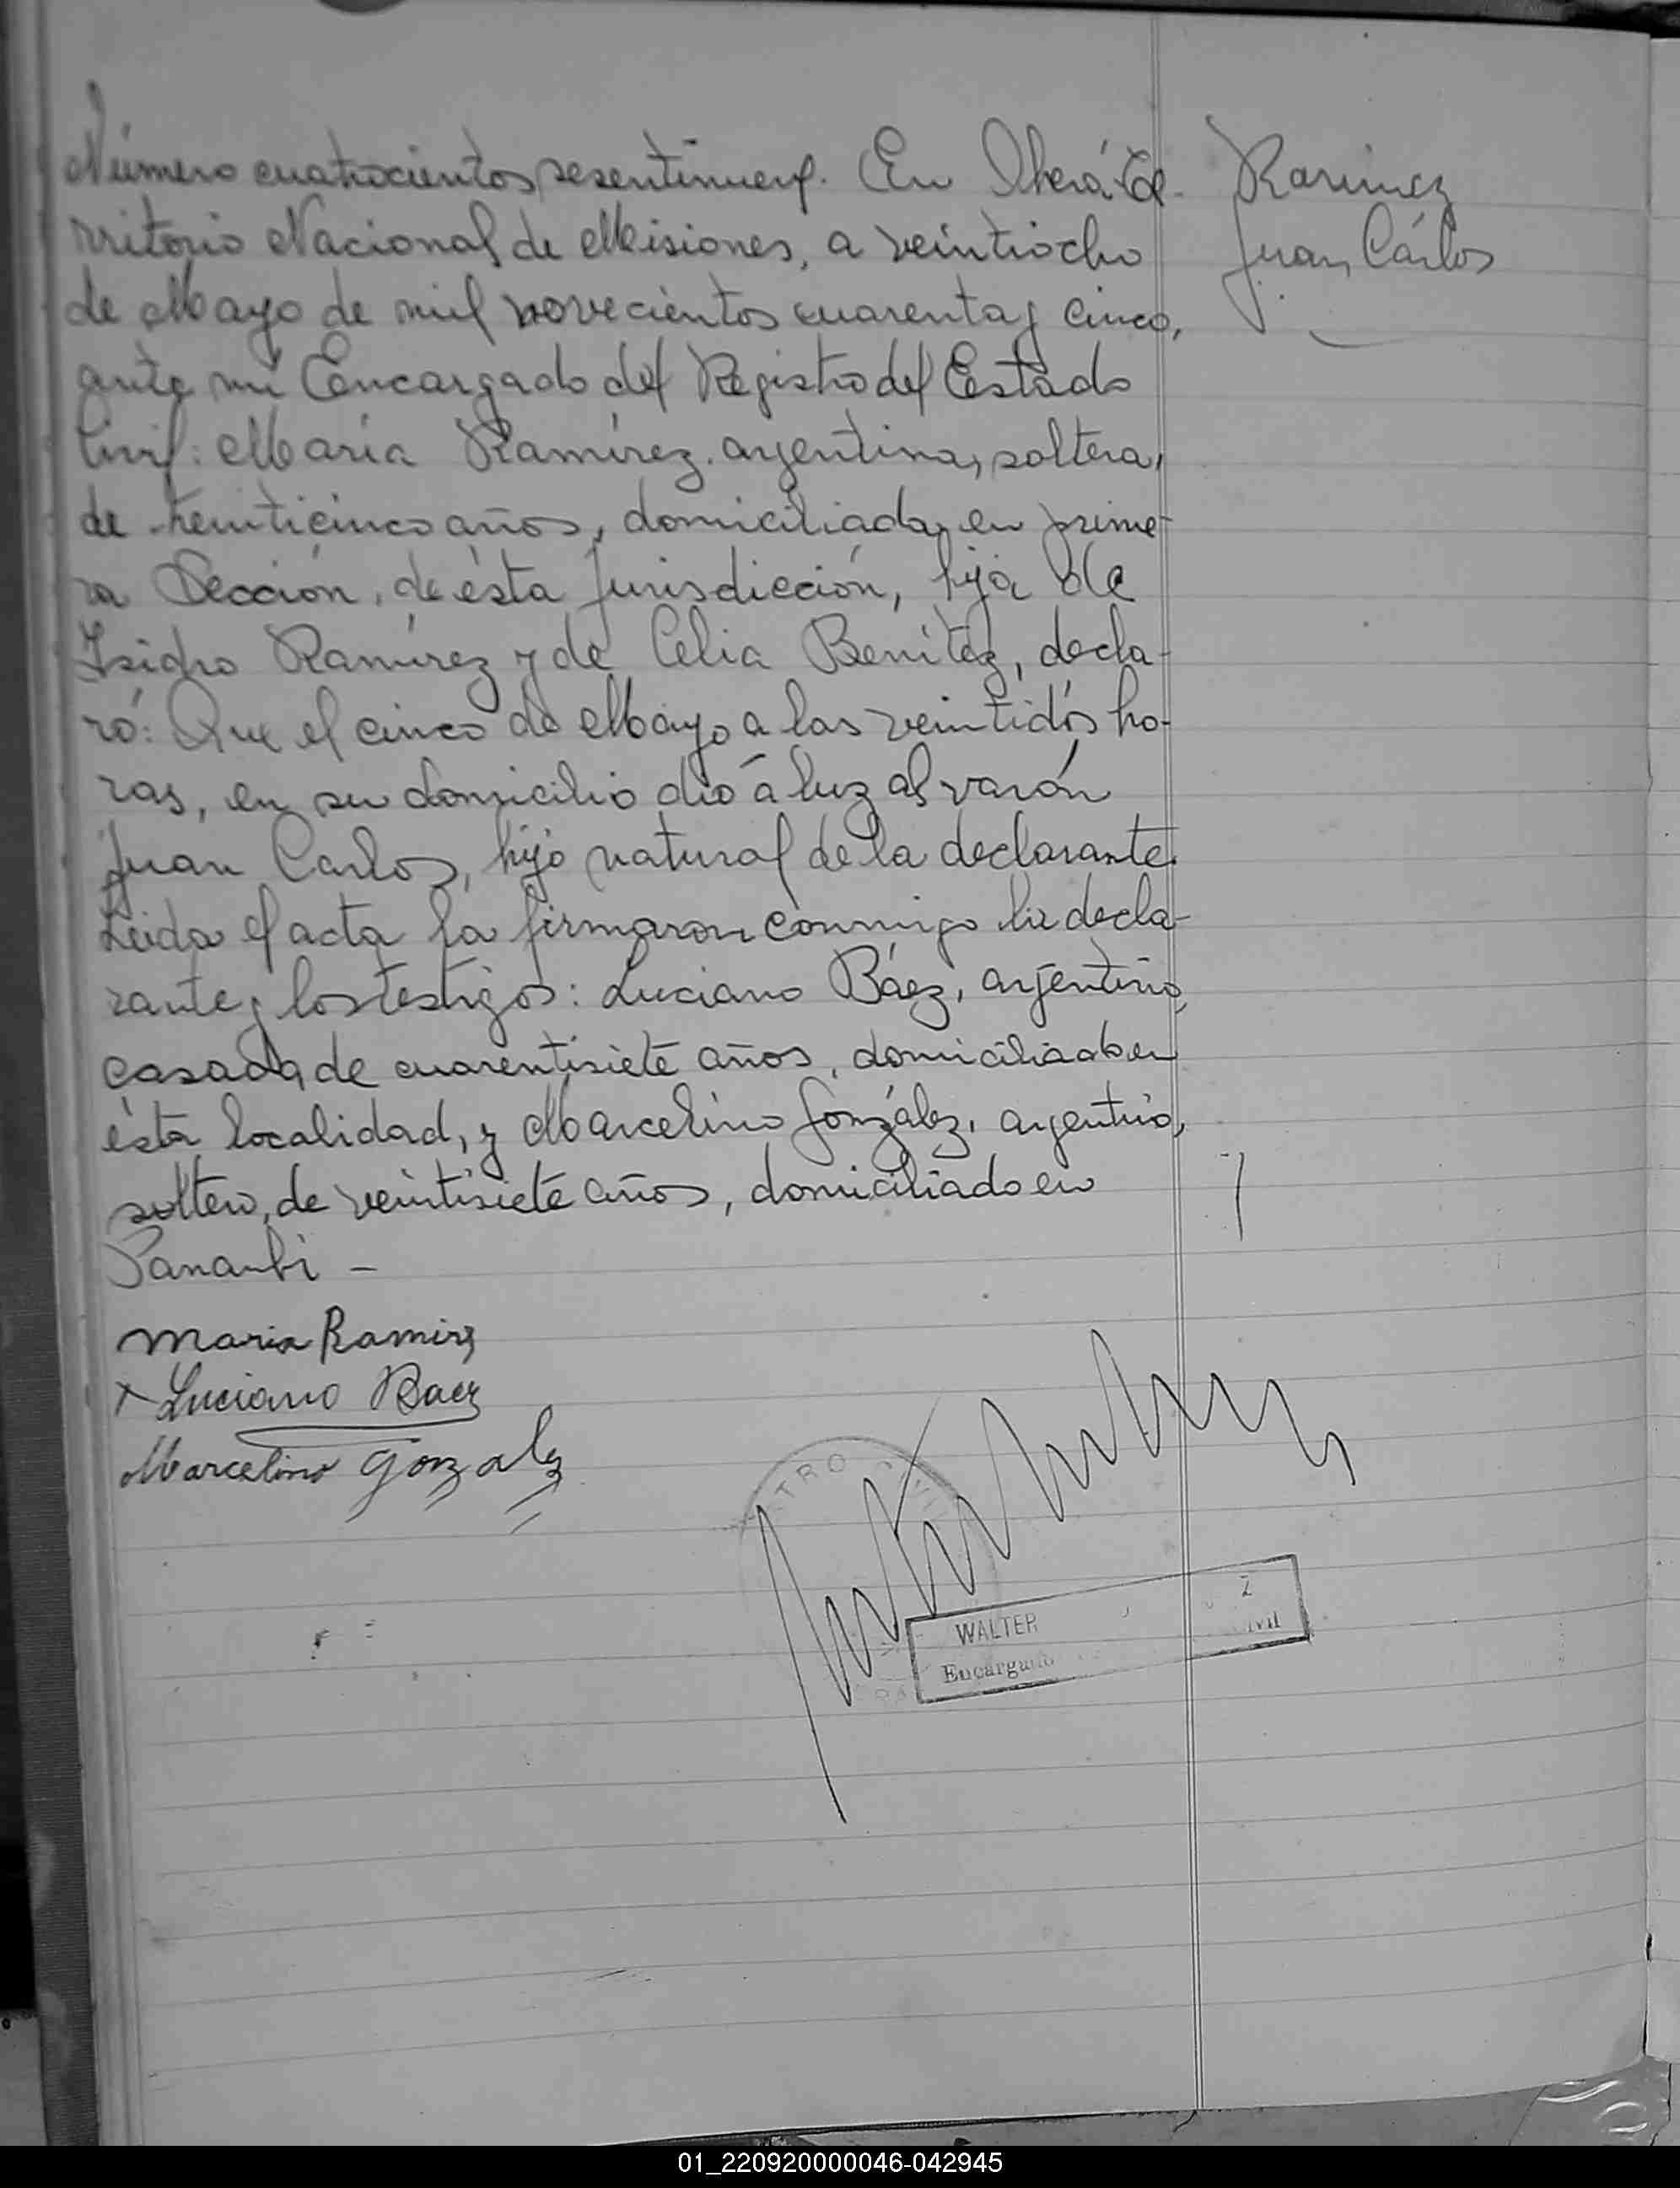 Número cuatrocientos sesentinueve. En Oberá, Te-
rritorio Nacional de Misiones, a veintiocho
de Mayo de mil novecientos cuarenta y cinco,
ante mi Encargado del Registro del Estado
Civil: María Ramírez, argentina, soltera,
de veinticinco años, domiciliada en prime-
ra Sección, de ésta Jurisdicción, hija de
Isidro Ramírez y de Celia Benítez, decla-
ró: Que el cinco de Mayo a las veintidós ho-
ras, en su domicilio dió á luz al varón
Juan Carlos, hijo natural de la declarante.
Leida el acta la firmaron conmigo la decla-
rante y los testigos: Luciano Báez, argentino,
casado, de cuarentisiete años, domiciliado en
ésta localidad, y Marcelino González, argentino,
soltero, de veintisiete años, domiciliado en
Panambi -
Ramirez
Juan Cárlos
Maria Ramirez
x Luciano Baez
Marcelino Gonzalez
WALTER
Encargado
01_220920000046-042945